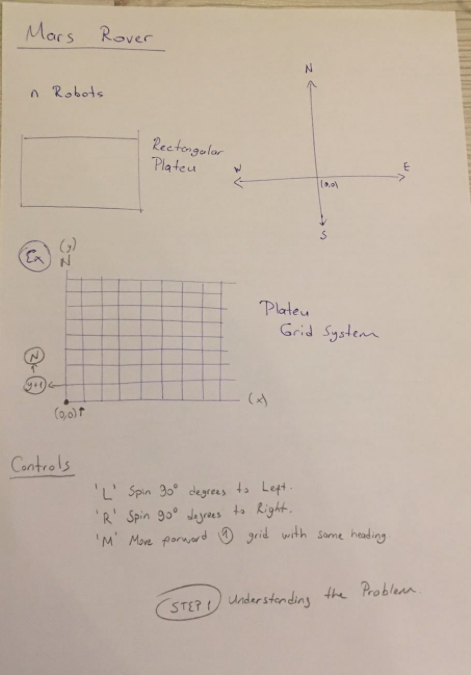 Mars Rover
n Robots
N
Rectangular
Plateu
W
E
(0,0)
S
Ex
(y)
N
Plateu
Grid System
N
y+1
(0,0)
(x)
Controls
'L' Spin 90° degrees to Left.
'R' Spin 90° degrees to Right.
'M' Move forward 1 grid with same heading.
STEP 1 Understanding the Problem.